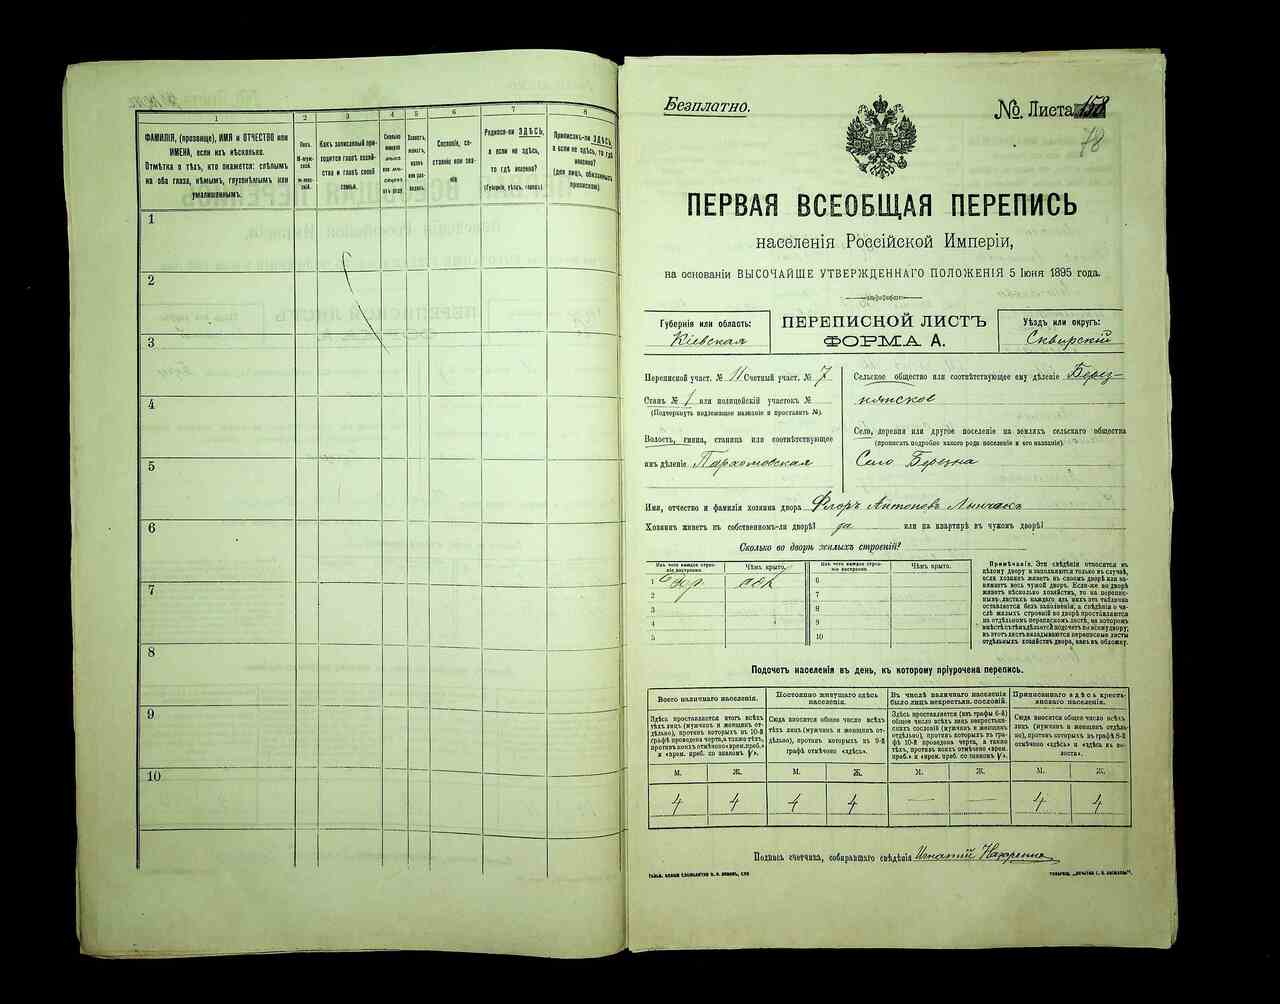 1
2
3
4
5
6
7
8
ФАМИЛІЯ, (прозвище), ИМЯ и ОТЧЕСТВО или
ИМЕНА, если ихъ нѣсколько.
Отмѣтка о тѣхъ, кто окажется: слѣпымъ
на оба глаза, нѣмымъ, глухонѣмымъ или
умалишеннымъ.
Полъ.
Какъ записанный при-
ходится главѣ хозяй-
ства и главѣ своей
семьи.
Сколько
Сословіе, со-
стояніе или зва-
ніе
Родился-ли ЗДѢСЬ,
а если не здѣсь,
то гдѣ именно?
(Губернія, уѣздъ, городъ.)
Приписанъ-ли ЗДѢСЬ,
а если не здѣсь, то гдѣ
именно?
(для лицъ, обязанныхъ
припискою).
1
2
3
4
5
6
7
8
9
10
Безплатно.
№ Листа 158
78
ПЕРВАЯ ВСЕОБЩАЯ ПЕРЕПИСЬ
населенія Россійской Имперіи,
на основаніи ВЫСОЧАЙШЕ УТВЕРЖДЕННАГО ПОЛОЖЕНІЯ 5 Іюня 1895 года.
Губернія или область:
Кіевская
ПЕРЕПИСНОЙ ЛИСТЪ
ФОРМА А.
Уѣздъ или округъ:
Сквирскій
Переписной участ. № 11 Счетный участ. № 7
Станъ № 1 или полицейскій участокъ №
(Подчеркнуть подлежащее названіе и проставить №).
Волость, гмина, станица или соотвѣтствующее
имъ дѣленіе Пархомовская
Сельское общество или соотвѣтствующее ему дѣленіе Берез-
нянское
Село, деревня или другое поселеніе на земляхъ сельскаго общества
(прописать подробно какого рода поселеніе и его названіе).
Село Березна
Имя, отчество и фамилія хозяина двора Флоръ Антоновъ
Хозяинъ живетъ въ собственномъ-ли дворѣ? да или на квартирѣ въ чужомъ дворѣ?
Сколько во дворѣ жилыхъ строеній?
Изъ чего каждое строе-
ніе выстроено.
Чѣмъ крыто.
Изъ чего каждое строе-
ніе выстроено.
Чѣмъ крыто.
1
2
3
4
5
6
7
8
9
10
Примѣчаніе. Эти свѣдѣнія относятся къ
цѣлому двору и заполняются только въ случаѣ,
если хозяинъ живетъ въ своемъ дворѣ или за-
нимаетъ весь чужой дворъ. Если-же во дворѣ
живетъ нѣсколько хозяйствъ, то на перепис-
ныхъ листахъ каждаго изъ нихъ эта таблица
оставляется безъ заполненія, а свѣдѣнія о чи-
слѣ жилыхъ строеній во дворѣ проставляются
на отдѣльномъ переписномъ листѣ, на которомъ
вмѣстѣ съ тѣмъ дѣлается подсчетъ по всему двору;
въ этотъ листъ вкладываются переписные листы
отдѣльныхъ хозяйствъ двора, какъ въ обложку.
Подсчетъ населенія въ день, къ которому пріурочена перепись.
Всего наличнаго населенія.
Постоянно живущаго здѣсь
населенія.
Въ числѣ наличнаго населенія
было лицъ некрестьян. сословій.
Приписаннаго здѣсь кресть-
янскаго населенія.
Здѣсь проставляется итогъ всѣхъ
тѣхъ лицъ (мужчинъ и женщинъ от-
дѣльно), противъ которыхъ въ 10-й
графѣ проведена черта, а также тѣхъ,
противъ коихъ отмѣчено «врем. преб.»
и «врем. преб. со знакомъ V».
Сюда вносится общее число всѣхъ
тѣхъ лицъ (мужчинъ и женщинъ от-
дѣльно), противъ которыхъ въ 9-й
графѣ отмѣчено «здѣсь».
Здѣсь проставляется (изъ графы 6-й)
общее число всѣхъ лицъ некрестьян-
скихъ сословій (мужчинъ и женщинъ
отдѣльно), противъ которыхъ въ гра-
фѣ 10-й проведена черта, а также
тѣхъ, противъ коихъ отмѣчено «врем.
преб.» и «врем. преб. со знакомъ V».
Сюда вносится общее число всѣхъ
тѣхъ лицъ (мужчинъ и женщинъ отдѣль-
но), противъ которыхъ въ графѣ 8-й
отмѣчено «здѣсь» и «здѣсь въ во-
лости».
М. Ж. М. Ж. М. Ж. М. Ж.
4 4 4 4 — — 4 4
Подпись счетчика, собиравшаго свѣдѣнія Игнатій